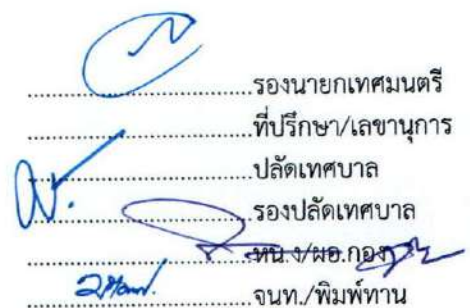 ..............................รองนายกเทศมนตรี
..............................ที่ปรึกษา/เลขานุการ
..............................ปลัดเทศบาล
..............................รองปลัดเทศบาล
..............................หน.ง/ผอ.กอง
..............................จนท./พิมพ์ทาน